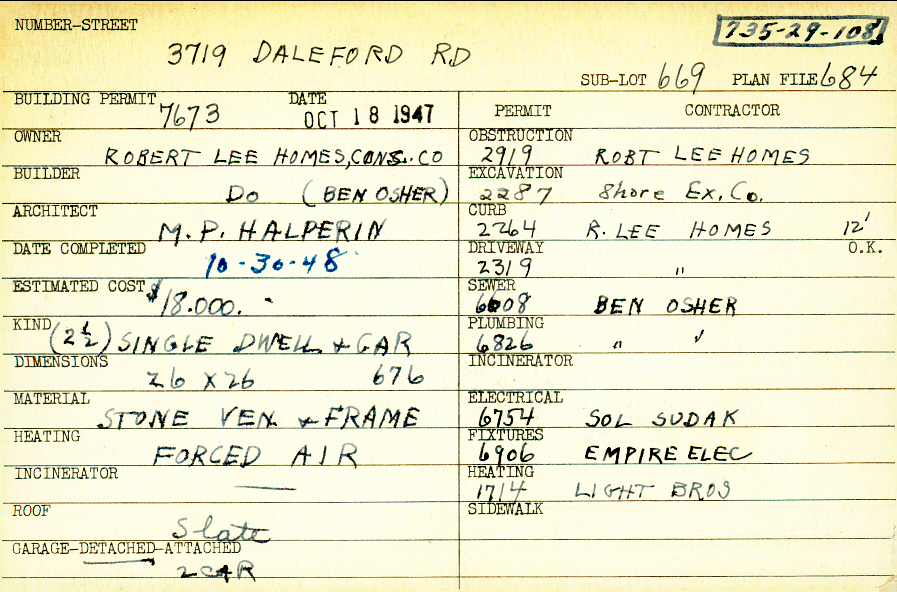 NUMBER-STREET
735-29-108
3719 DALEFORD RD
SUB-LOT 669 PLAN FILE 684
BUILDING PERMIT 7673 DATE OCT 18 1947
OWNER
ROBERT LEE HOMES, CONS. CO
BUILDER
DO (BEN OSHER)
ARCHITECT
M. P. HALPERIN
DATE COMPLETED
10-30-48
ESTIMATED COST $18.000.
KIND (2½) SINGLE DWELL & GAR
DIMENSIONS
26 X 26 676
MATERIAL
STONE VEN & FRAME
HEATING
FORCED AIR
INCINERATOR
—
ROOF
Slate
GARAGE-DETACHED-ATTACHED
2 CAR
PERMIT CONTRACTOR
OBSTRUCTION
2919 ROBT LEE HOMES
EXCAVATION
2287 Shore Ex. Co.
CURB
2264 R. LEE HOMES 12'
DRIVEWAY O.K.
2319 "
SEWER
6608 BEN OSHER
PLUMBING
6826 " "
INCINERATOR
ELECTRICAL
6754 SOL SUDAK
FIXTURES
6906 EMPIRE ELEC
HEATING
1714 LIGHT BROS
SIDEWALK